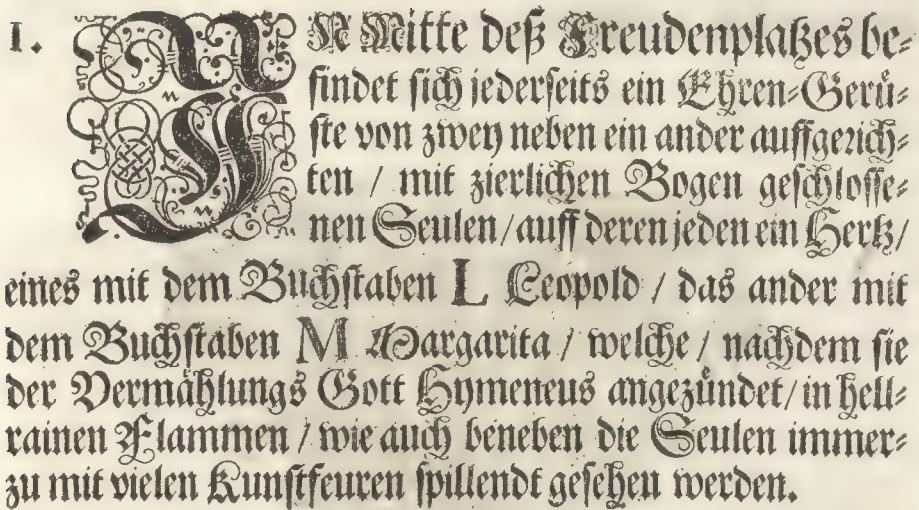 1. IN Mitte deß Freudenplatzes be⸗
findet sich jederseits ein Ehren⸗Gerü⸗
ste von zwey neben ein ander auffgerich⸗
ten / mit zierlichen Bogen geschlosse⸗
nen Seulen / auff deren jeden ein Hertz /
eines mit dem Buchstaben L Leopold / das ander mit
dem Buchstaben M Margarita / welche / nachdem sie
der Vermählungs Gott Hymeneus angezündet / in hell⸗
rainen Flammen / wie auch beneben die Seulen immer⸗
zu mit vielen Kunstfeuren spillendt gesehen werden.